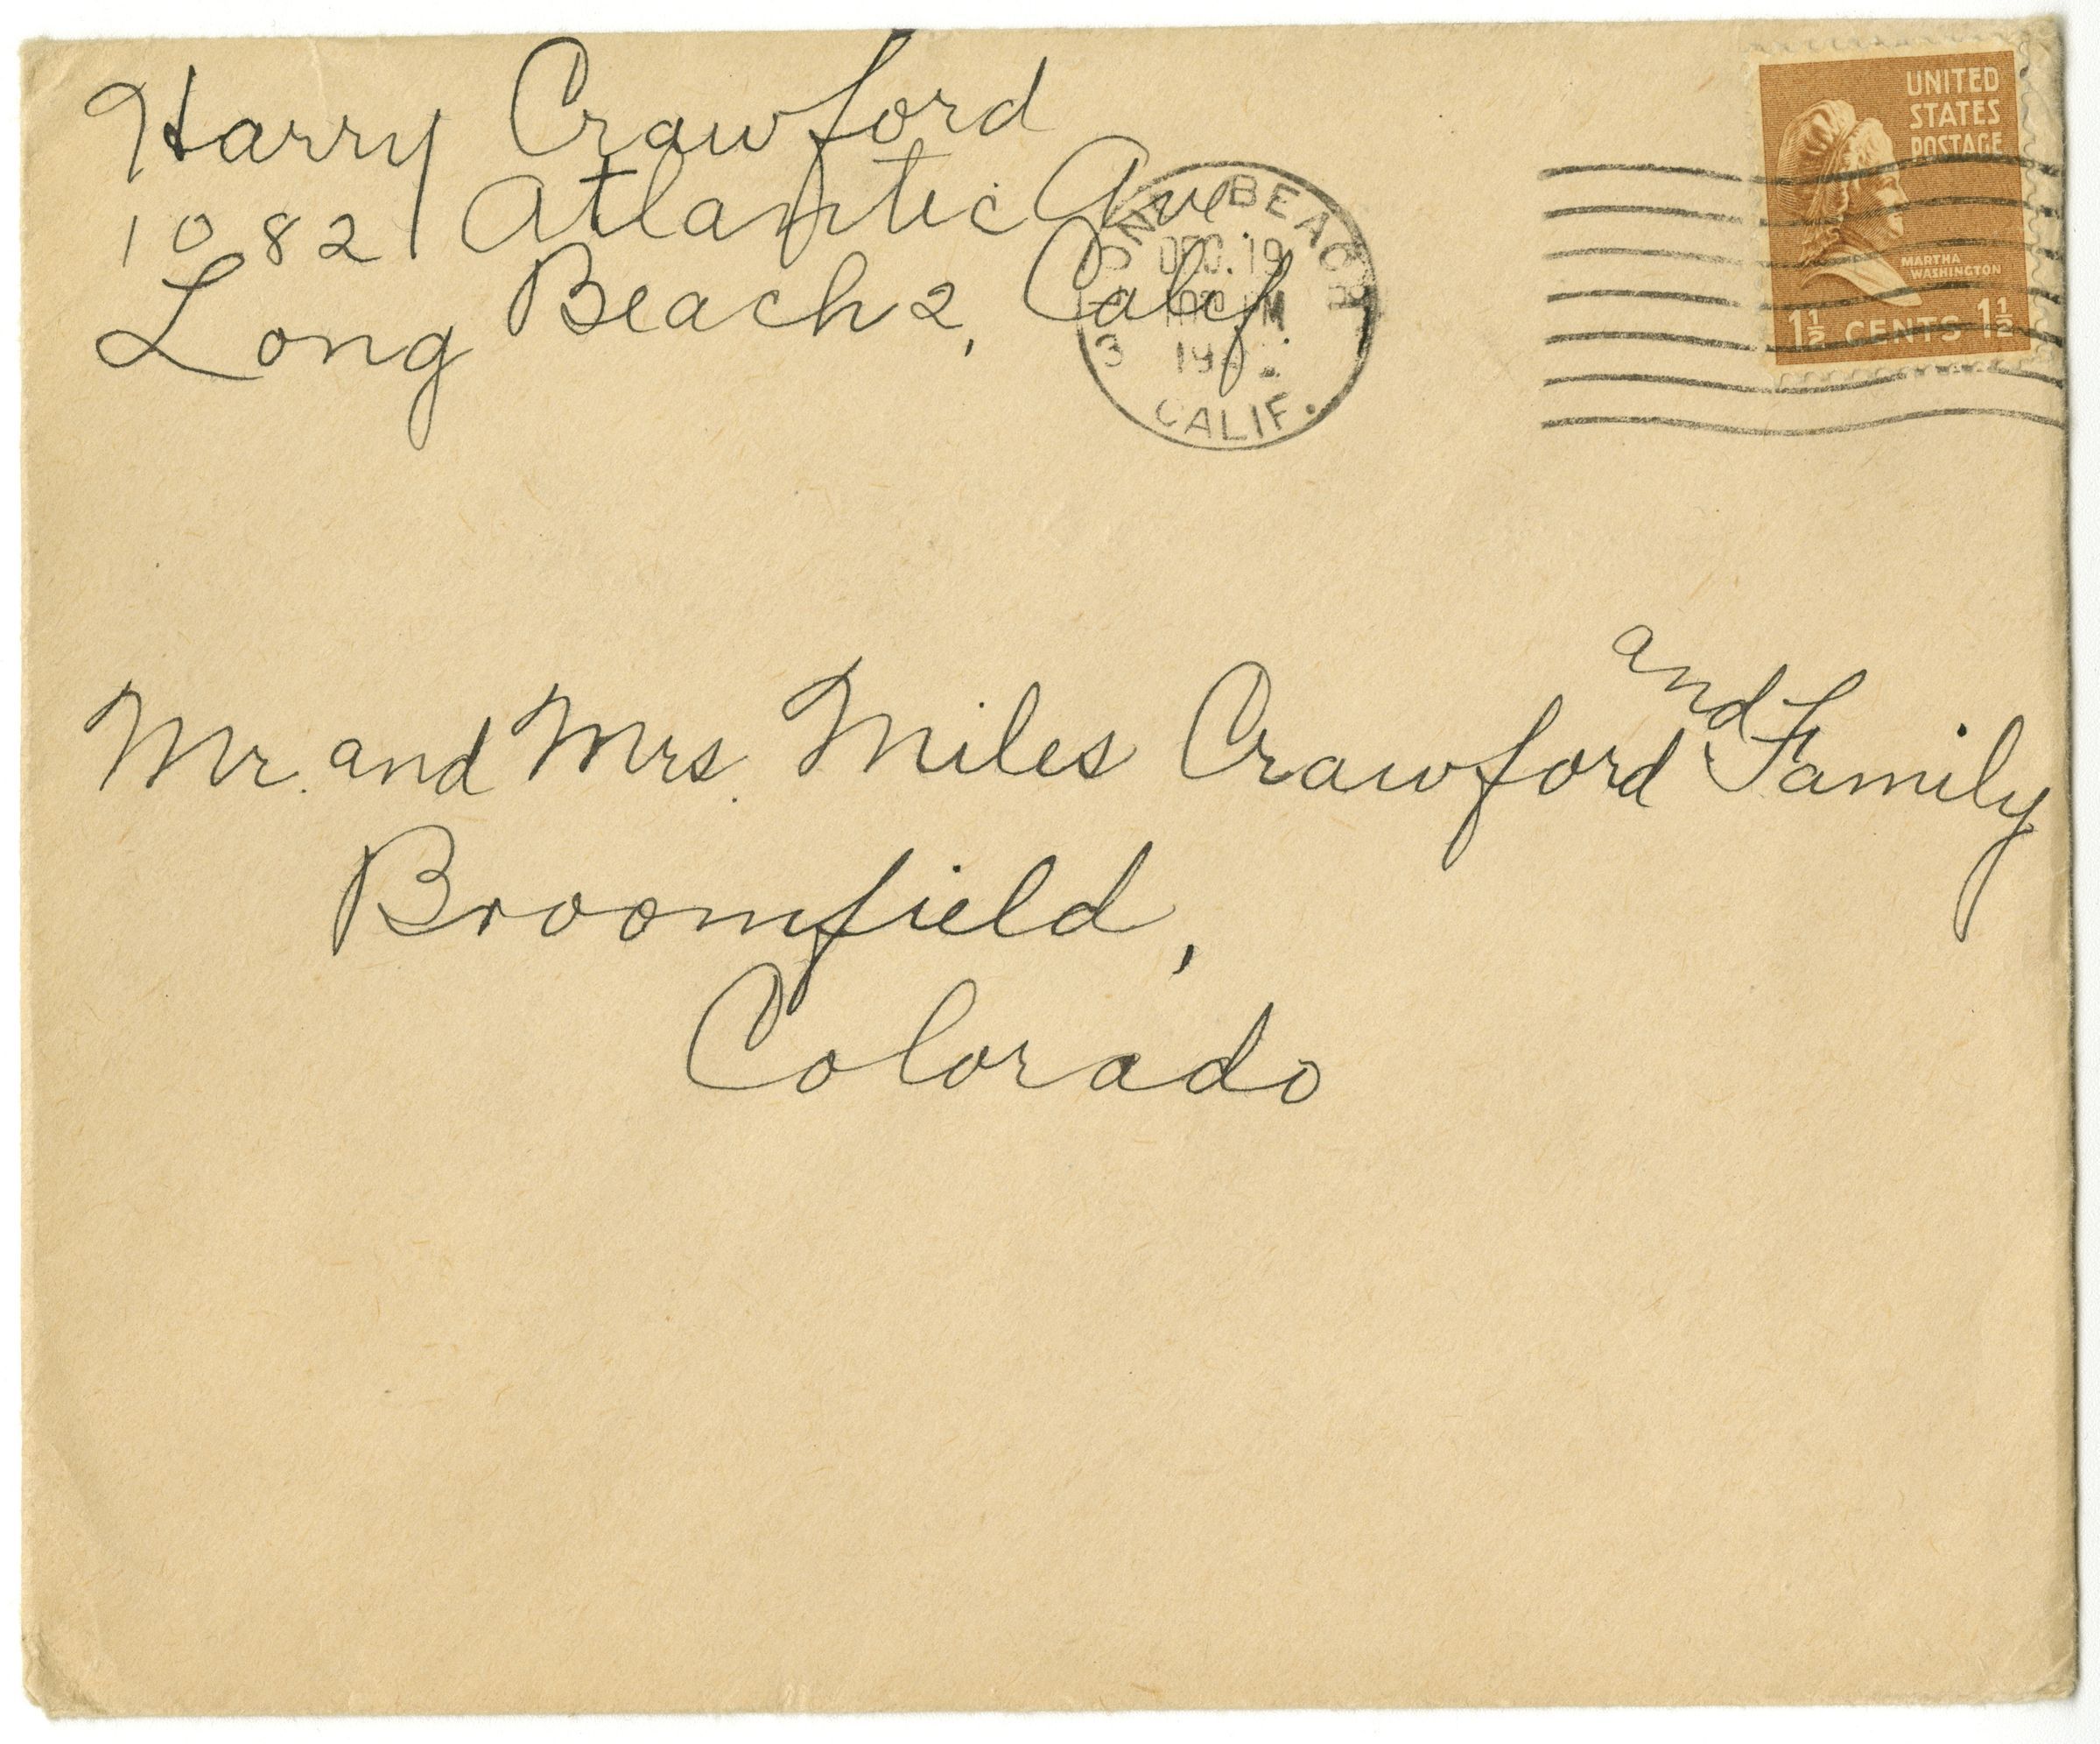 Harry Crawford
1082 Atlantic Ave
Long Beach 2, Calif
LONG BEACH
DEC. 19
PM
3
CALIF.
UNITED
STATES
POSTAGE
MARTHA
WASHINGTON
1½ CENTS 1½
and
Mr. and Mrs. Miles Crawford Family
Broomfield,
Colorado